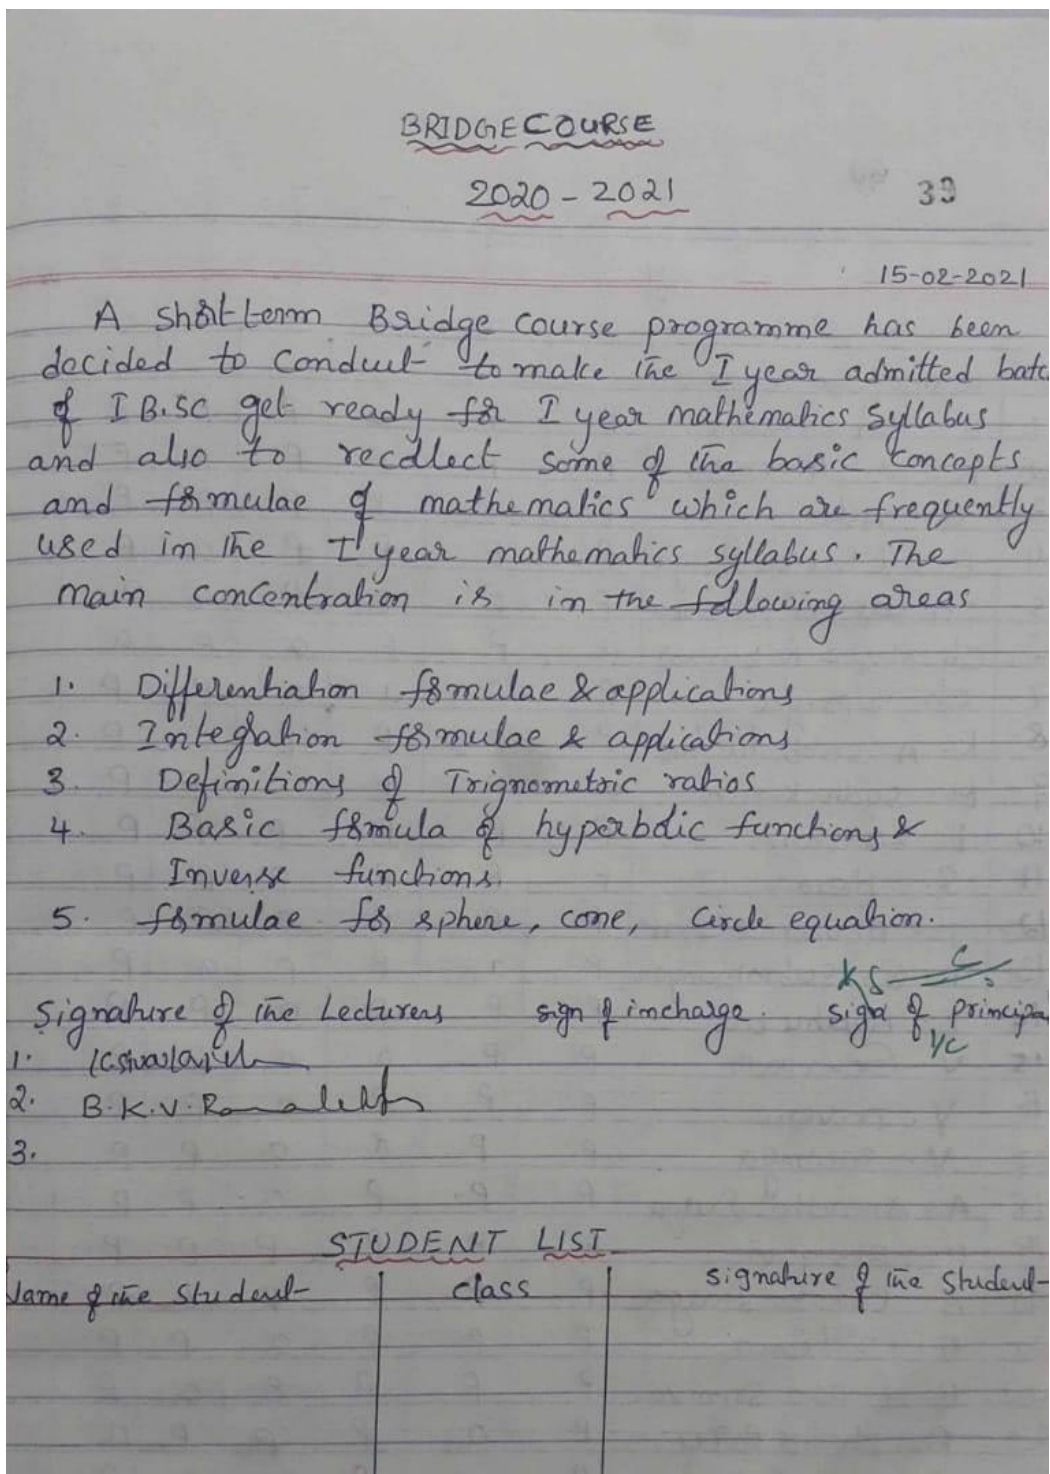 BRIDGE COURSE
2020 - 2021
39
15-02-2021
A short term Bridge course programme has been
decided to conduct to make the I year admitted batc
of I B.SC get ready for I year mathematics syllabus
and also to recollect some of the basic concepts
and formulae of mathematics which are frequently
used in the I year mathematics syllabus. The
main concentration is in the following areas
1. Differentiation formulae & applications
2. Integration formulae & applications
3. Definitions of Trignometric ratios
4. Basic formula of hyperbolic functions &
Inverse functions.
5. formulae for sphere, cone, circle equation.
Signature of the Lecturers sign of incharge. sign of principal
I/C
1.
2. B.K.V.
3.
STUDENT LIST
Name of the Student class signature of the Student